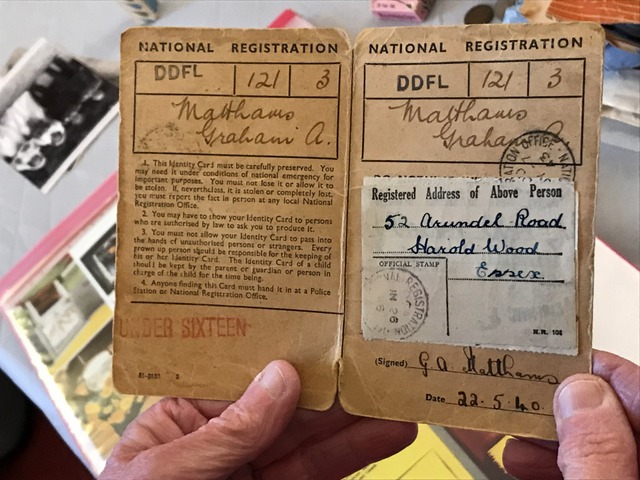 NATIONAL REGISTRATION
DDFL 121 3
Matthams
Graham A.
1. This Identity Card must be carefully preserved. You
may need it under conditions of national emergency for
important purposes. You must not lose it or allow it to
be stolen. If, nevertheless, it is stolen or completely lost,
you must report the fact in person at any local National
Registration Office.
2. You may have to show your Identity Card to persons
who are authorised by law to ask you to produce it.
3. You must not allow your Identity Card to pass into
the hands of unauthorised persons or strangers. Every
grown up person should be responsible for the keeping of
his or her Identity Card. The Identity Card of a child
should be kept by the parent or guardian or person in
charge of the child for the time being.
4. Anyone finding this Card must hand it in at a Police
Station or National Registration Office.
UNDER SIXTEEN
NATIONAL REGISTRATION
DDFL 121 3
Matthams
Graham
Registered Address of Above Person
52 Arundel Road
Harold Wood
Essex
OFFICIAL STAMP
REGISTRATION
N.R. 108
(Signed) G A Matthams
Date 22.5.40.